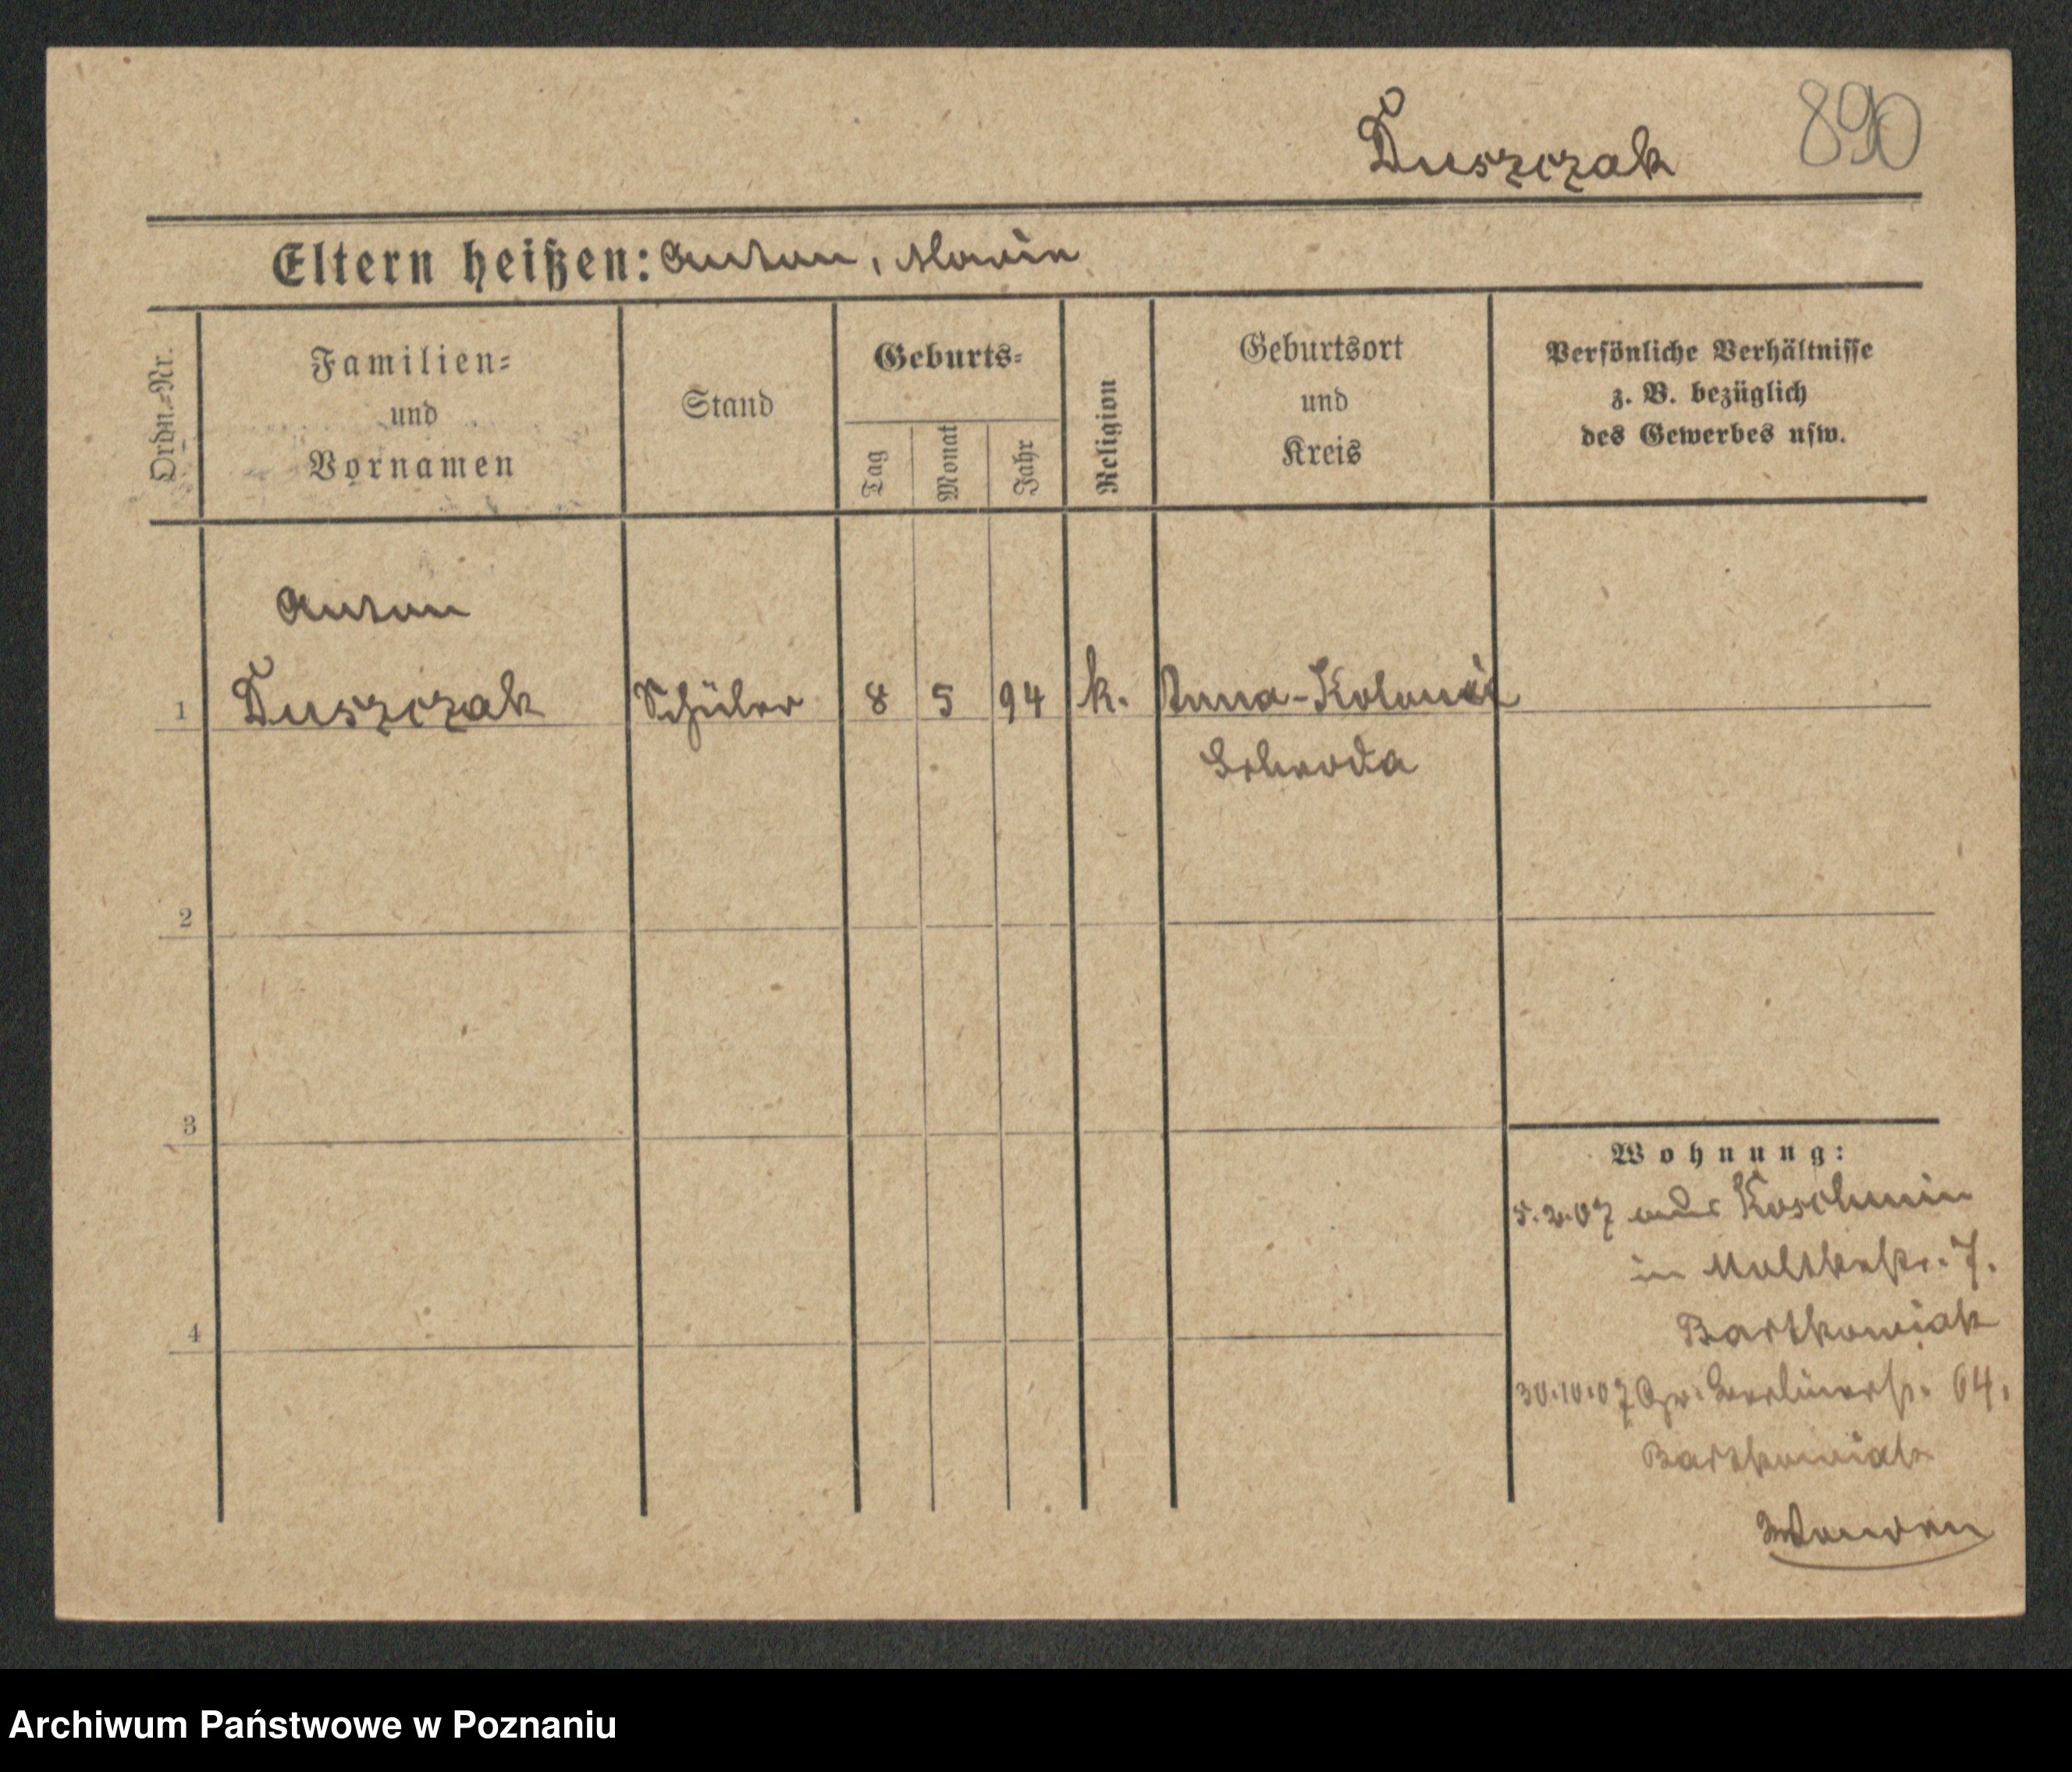 Duszczak 890
Eltern heißen: Anton, Marie
Ordn.-Nr.
Familien-
und
Vornamen
Stand
Geburts-
Tag
Monat
Jahr
Religion
Geburtsort
und
Kreis
Persönliche Verhältnisse
z. B. bezüglich
des Gewerbes usw.
Anton
1 Duszczak Schüler 8 5 94 k. Anna-Kolonie
Schroda
2
3
4
Wohnung:
5.2.07 aus Koschmin
in Moltkestr. 7.
Bartkowiak
30.10.07 Gr. Berlinerstr. 64.
Bartkowiak
Archiwum Państwowe w Poznaniu